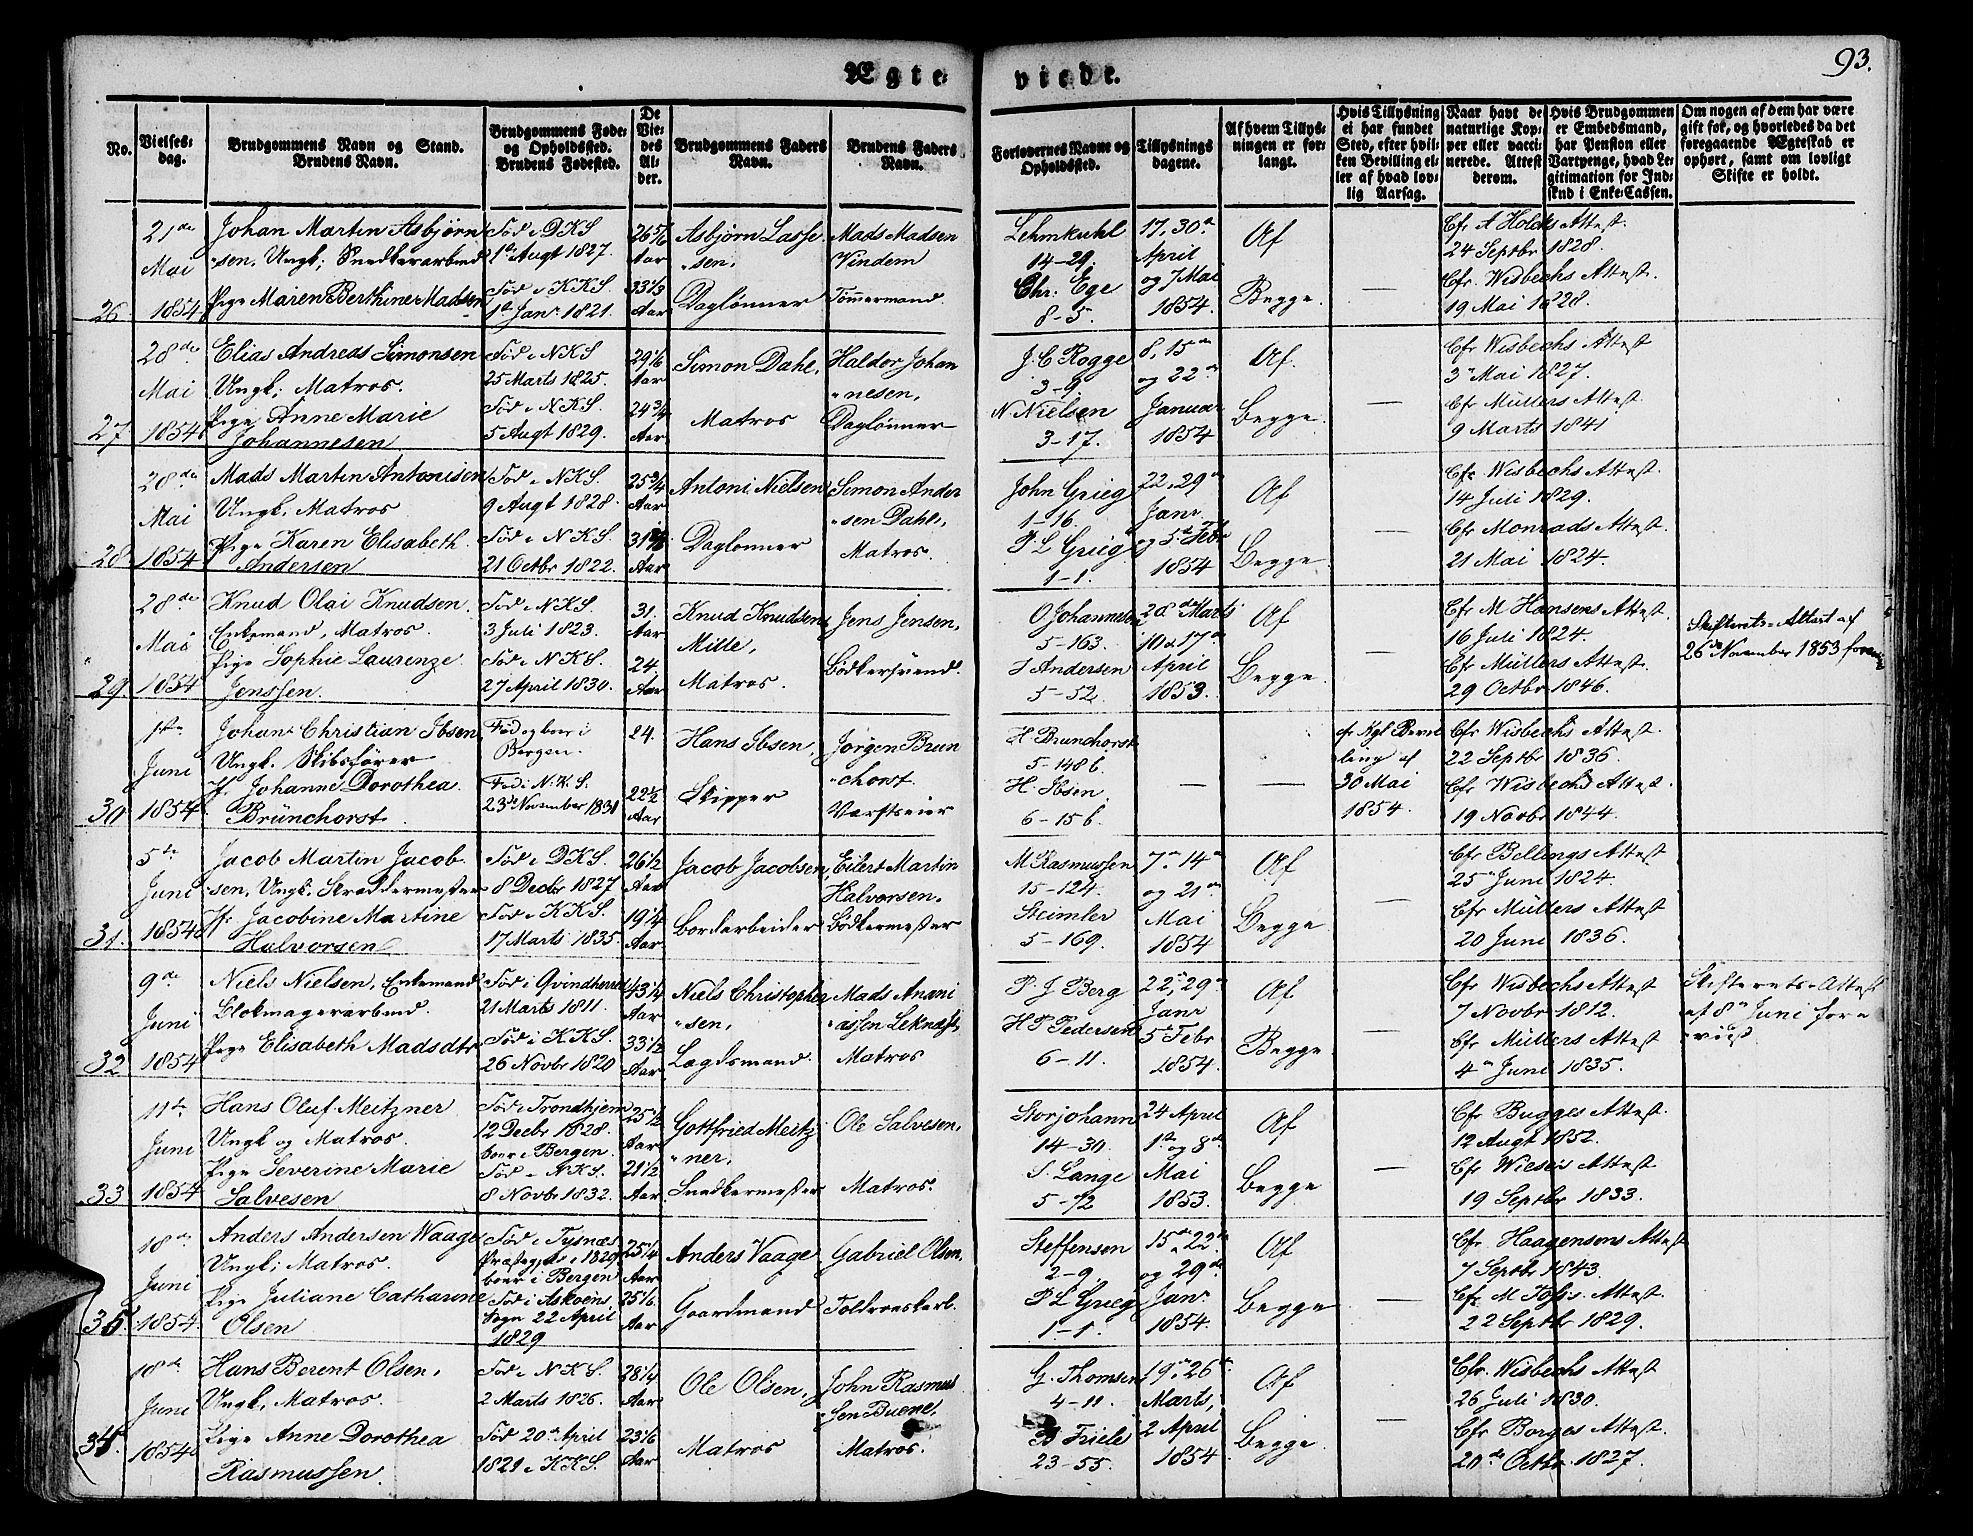 93.
Ægteviede.
No.
Vielses-
dag.
Brudgommens Navn og Stand.
Brudens Navn.
Brudgommens Føde-
og Opholdssted.
Brudens Fødested.
De
Vie-
des
Al-
der.
Brudgommens Faders
Navn.
Brudens Faders
Navn.
Forlovernes Navne og
Opholdssted.
Tillysnings
dagene.
Af hvem Tillys-
ningen er for-
langt.
Hvis Tillysning
ei har fundet
Sted, efter hvil-
ken Bevilling el-
ler af hvad lov-
lig Aarsag.
Naar havt de
naturlige Kop-
per eller vacci-
nerede. Attest
derom.
Hvis Brudgommen
er Embedsmand,
har Pension eller
Vartpenge, hvad Le-
gitimation for Ind-
skud i Enke-Cassen.
Om nogen af dem har være
gift før, og hvorledes da det
foregaaende Ægteskab er
ophørt, samt om lovligt
Skifte er holdt.
26
21de
Mai
1854
Johan Martin Asbjørn
sen, Ungk; Snedkerarbeid
Pige Maren Berthine Madsen
Fød i DKS
1de Augt 1827.
Fød i KKS.
1de Janr 1821.
26 5/6
Aar
33 1/3
Aar
Asbjørn Lasse
sen,
Daglønner
Mads Madsen
Vindem
Tømmermand.
Lehmkuhl
14-29.
Chr: Ege
8-5.
17, 30te
April
og 7 Mai
1854.
Af
Begge.
Cfr A Holcks Attest.
24 Septbr 1828.
Cfr. Wisbechs Attest.
19 Mai 1828.
27
28de
Mai
1854
Elias Andreas Simonsen
Ungk; Matros.
Pige Anne Marie
Johannesen
Fød i NKS
25 Marts 1825.
Fød i NKS.
5 Augt 1829.
29 1/6
Aar
24 3/4
Aar
Simon Dahl,
Matros
Haldor Johan
nesen,
Daglønner
J. C Rogge
3-9
N Nielsen
3-17.
8, 15de
og 22de
Januar
1854
Af.
Begge.
—
Cfr Wisbechs Attest
3de Mai 1827.
Cfr Müllers Attest
9 Marts 1841
28
28de
Mai
1854
Mads Martin Antonisen
Ungk, Matros
Pige Karen Elisabeth
Andersen
Fød i NKS.
9 Augt 1828.
Fød i NKS.
21 Octbr 1822.
25 3/4
Aar
Aar
Antoni Nielsen
Daglønner
Simon Ander
sen Dahl,
Matros.
John Grieg
1-16.
P. L Grieg
1-1.
22, 29de
Janr.
og 5te Febr
1854
Af
Begge.
—
Cfr Wisbechs Attest.
14 Juli 1829.
Cfr. Monrads Attest
21 Mai 1824.
29
28de
Mai
1854
Knud Olai Knudsen.
Enkemand, Matros.
Pige Sophie Laurenze
Jenssen.
Fød i NKS,
3 Juli 1823.
Fød i NKS.
27 April 1830.
31.
Aar
24.
Aar
Knud Knudsen
Milde,
Matros.
Jens Jensen,
Bødkersvend.
O Johannesen
5-163.
J Andersen
5-52.
Marts
10 & 17de
April
1853.
Af
Begge.
—
Cfr M Hansens Attest.
16 Juli 1824.
Cfr Müllers Attest.
29 Octbr 1846.
Skifterets-Attest af
26de November 1853 forev:
30
1ste
Juni
1854.
Johan Christian Ibsen
Ungk. Skibsfører
Jfr. Johanne Dorothea
Brünchorst.
Fød og boer i
Bergen.
Fød i N.K.S.
23de November 1831
24.
22 1/2
Aar
Hans Ibsen,
Skipper
Jørgen Brun
chorst
Værftseier
H. Brunchorst
5-148b.
H. Ibsen.
6-15b.
—
—
cfr Kgl Bevil
ling af
30 Mai
1854.
Cfr Wisbechs Attest.
22 Septbr 1836.
Cfr. Wisbechs Attest.
19 Novbr 1844.
31.
5te
Juni
1854
Jacob Martin Jacob
sen, Ungk. Skræddermester
Jfr. Jacobine Martine
Halvorsen
Fød i DKS.
8 Decbr 1827
Fød i KKS.
17 Marts 1835.
26 1/2
Aar
19 1/4
Aar
Jacob Jacobsen,
Bordarbeider
Eilert Martin
Halvorsen.
Bødkermester
M Rasmussen
15-124.
Steimler
5-169.
7de 14de
og 21de
Mai
1854
Af
Begge
—
Cfr Bellings Attest
25de Juni 1824.
Cfr Müllers Attest
20 Juni 1836.
32
9de
Juni
1854
Niels Nielsen, Enkemand
Blokmagerarbeid.
Pige Elisabeth Madsdtr
Fød i Qvindherred
21 Marts 1811.
Fød i KKS.
26 Novbr 1820
43 1/4
Aar
33 1/2
Aar
Niels Christopher
sen,
Lagdsmand.
Mads Anani
assen Leknæs,
Matros
P. J Berg
H P Pedersen
6-11.
22, 29de
Janr
5te Febr
1854.
Af
Begge
—
Cfr Wisbechs Attest
7 Novbr 1812.
Cfr. Müllers Attest
4de Juni 1835.
Skifterets-Attest
af 8de Juni fore
viist.
33
11te
Juni
1854
Hans Oluf Meitzner
Ungk og Matros.
Pige Severine Marie
Salvesen
Fød i Trondhjem
12 Decbr 1828.
boer i Bergen.
Fød i NKS.
8 Novbr 1832.
25 1/2
Aar
21 1/2
Aar
Gottfried Meitz
ner,
Snedkermester
Ole Salvesen,
Matros.
Storjohann
14-30.
S. Lange
5-72
24 April
1ste og 8de
Mai
1853.
Af
Begge
—
Cfr. Bugges Attest.
12 Augt 1852.
Cfr Wieses Attest
19 Septbr 1833.
35
18de
Juni
1854.
Anders Andersen Waage
Ungk; Matros.
Pige Juliane Catharine
Olsen
Fød i Tysnæs
Præstegjeld i 1829
boer i Bergen
Fød i Askøens
Sogn 22 April
1829
25 1/4
Aar
25 1/6
Aar
Anders Vaage
Gaardmand
Gabriel Olsen,
Toldroerskarl.
Steffensen
2-9.
P L Grieg
1-1.
15de 22de
og 29de
Janr
1854.
Af
Begge
—
Cfr. Haagensons Attest
7 Septbr 1843.
22 Septbr 1829.
34.
18de
Juni
1854
Hans Berent Olsen,
Ungk, Matros.
Pige Anne Dorothea
Rasmussen
Fød i NKS.
2 Marts 1826.
Fød 20de April
1821 i KKS.
28 1/4
Aar
Aar
Ole Olsen,
Matros
John Rasmus
sen Buene,
Matros.
G. Thomsen
4-11.
Friele
23-55.
19de 26de
Marts,
2 April
1854
Af
Begge.
—
Cfr. Wisbechs Attest
26 Juli 1830.
Cfr. Borges Attest
20de Octbr. 1827.